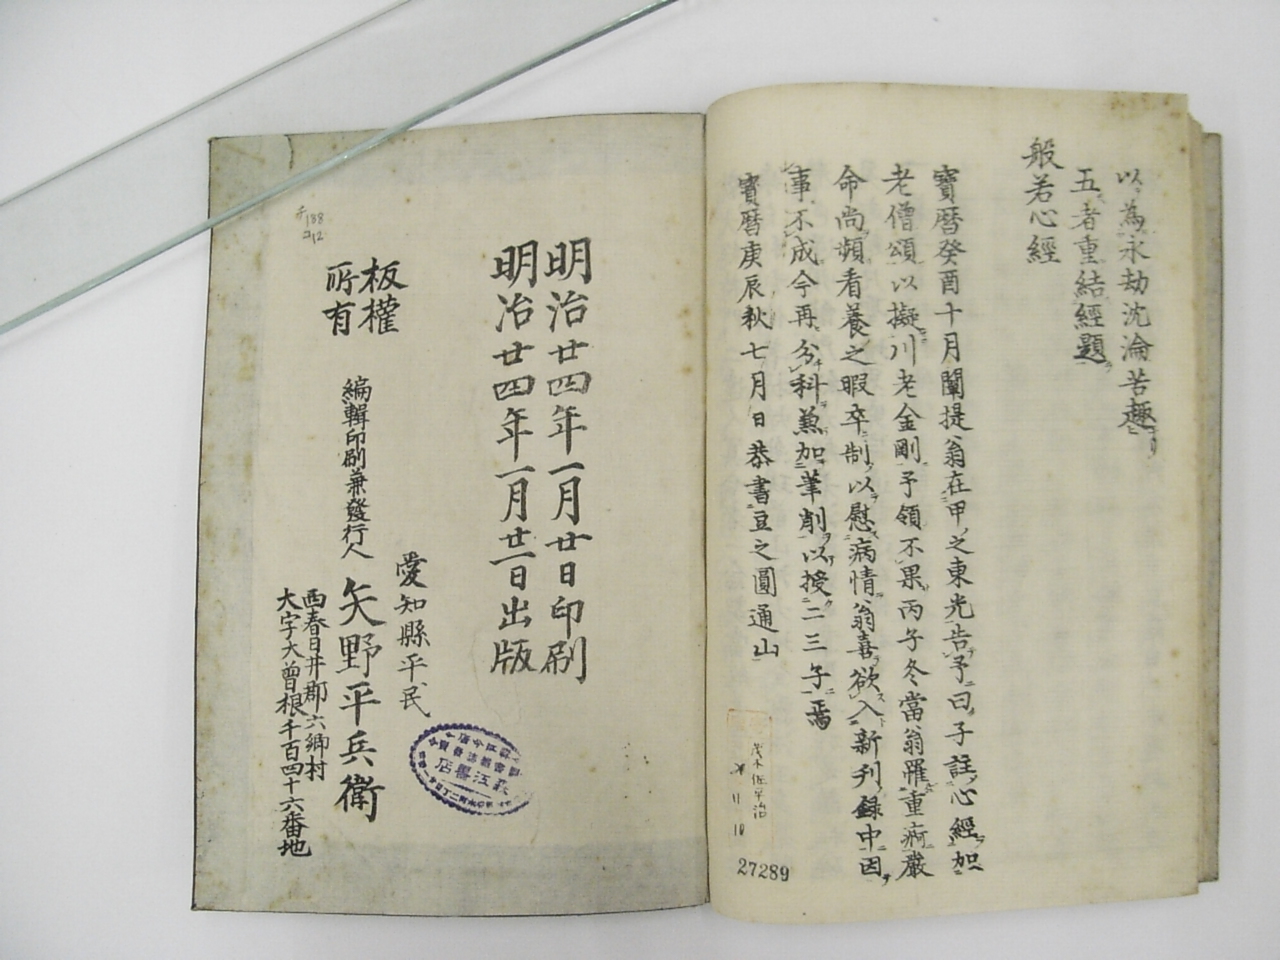 以為永劫沈淪苦趣
五者重結經題
般若心經
寶曆癸酉十月闡提翁在甲之東光告予曰子註心經加
老僧頌以擬川老金剛予領不果丙子冬當翁罹重痾嚴
命尚頻看養之暇卒制以慰病情翁喜欲入新刊錄中因
事不成今再分科兼加筆削以授二三子焉
寶曆庚辰秋七月日恭書豆之圓通山
27289
明治廿四年一月廿日印刷
明治廿四年一月廿二日出版
板權
所有
愛知縣平民
編輯印刷兼發行人
矢野平兵衛
西春日井郡六鄉村
大字大曾根千百四十六番地
188